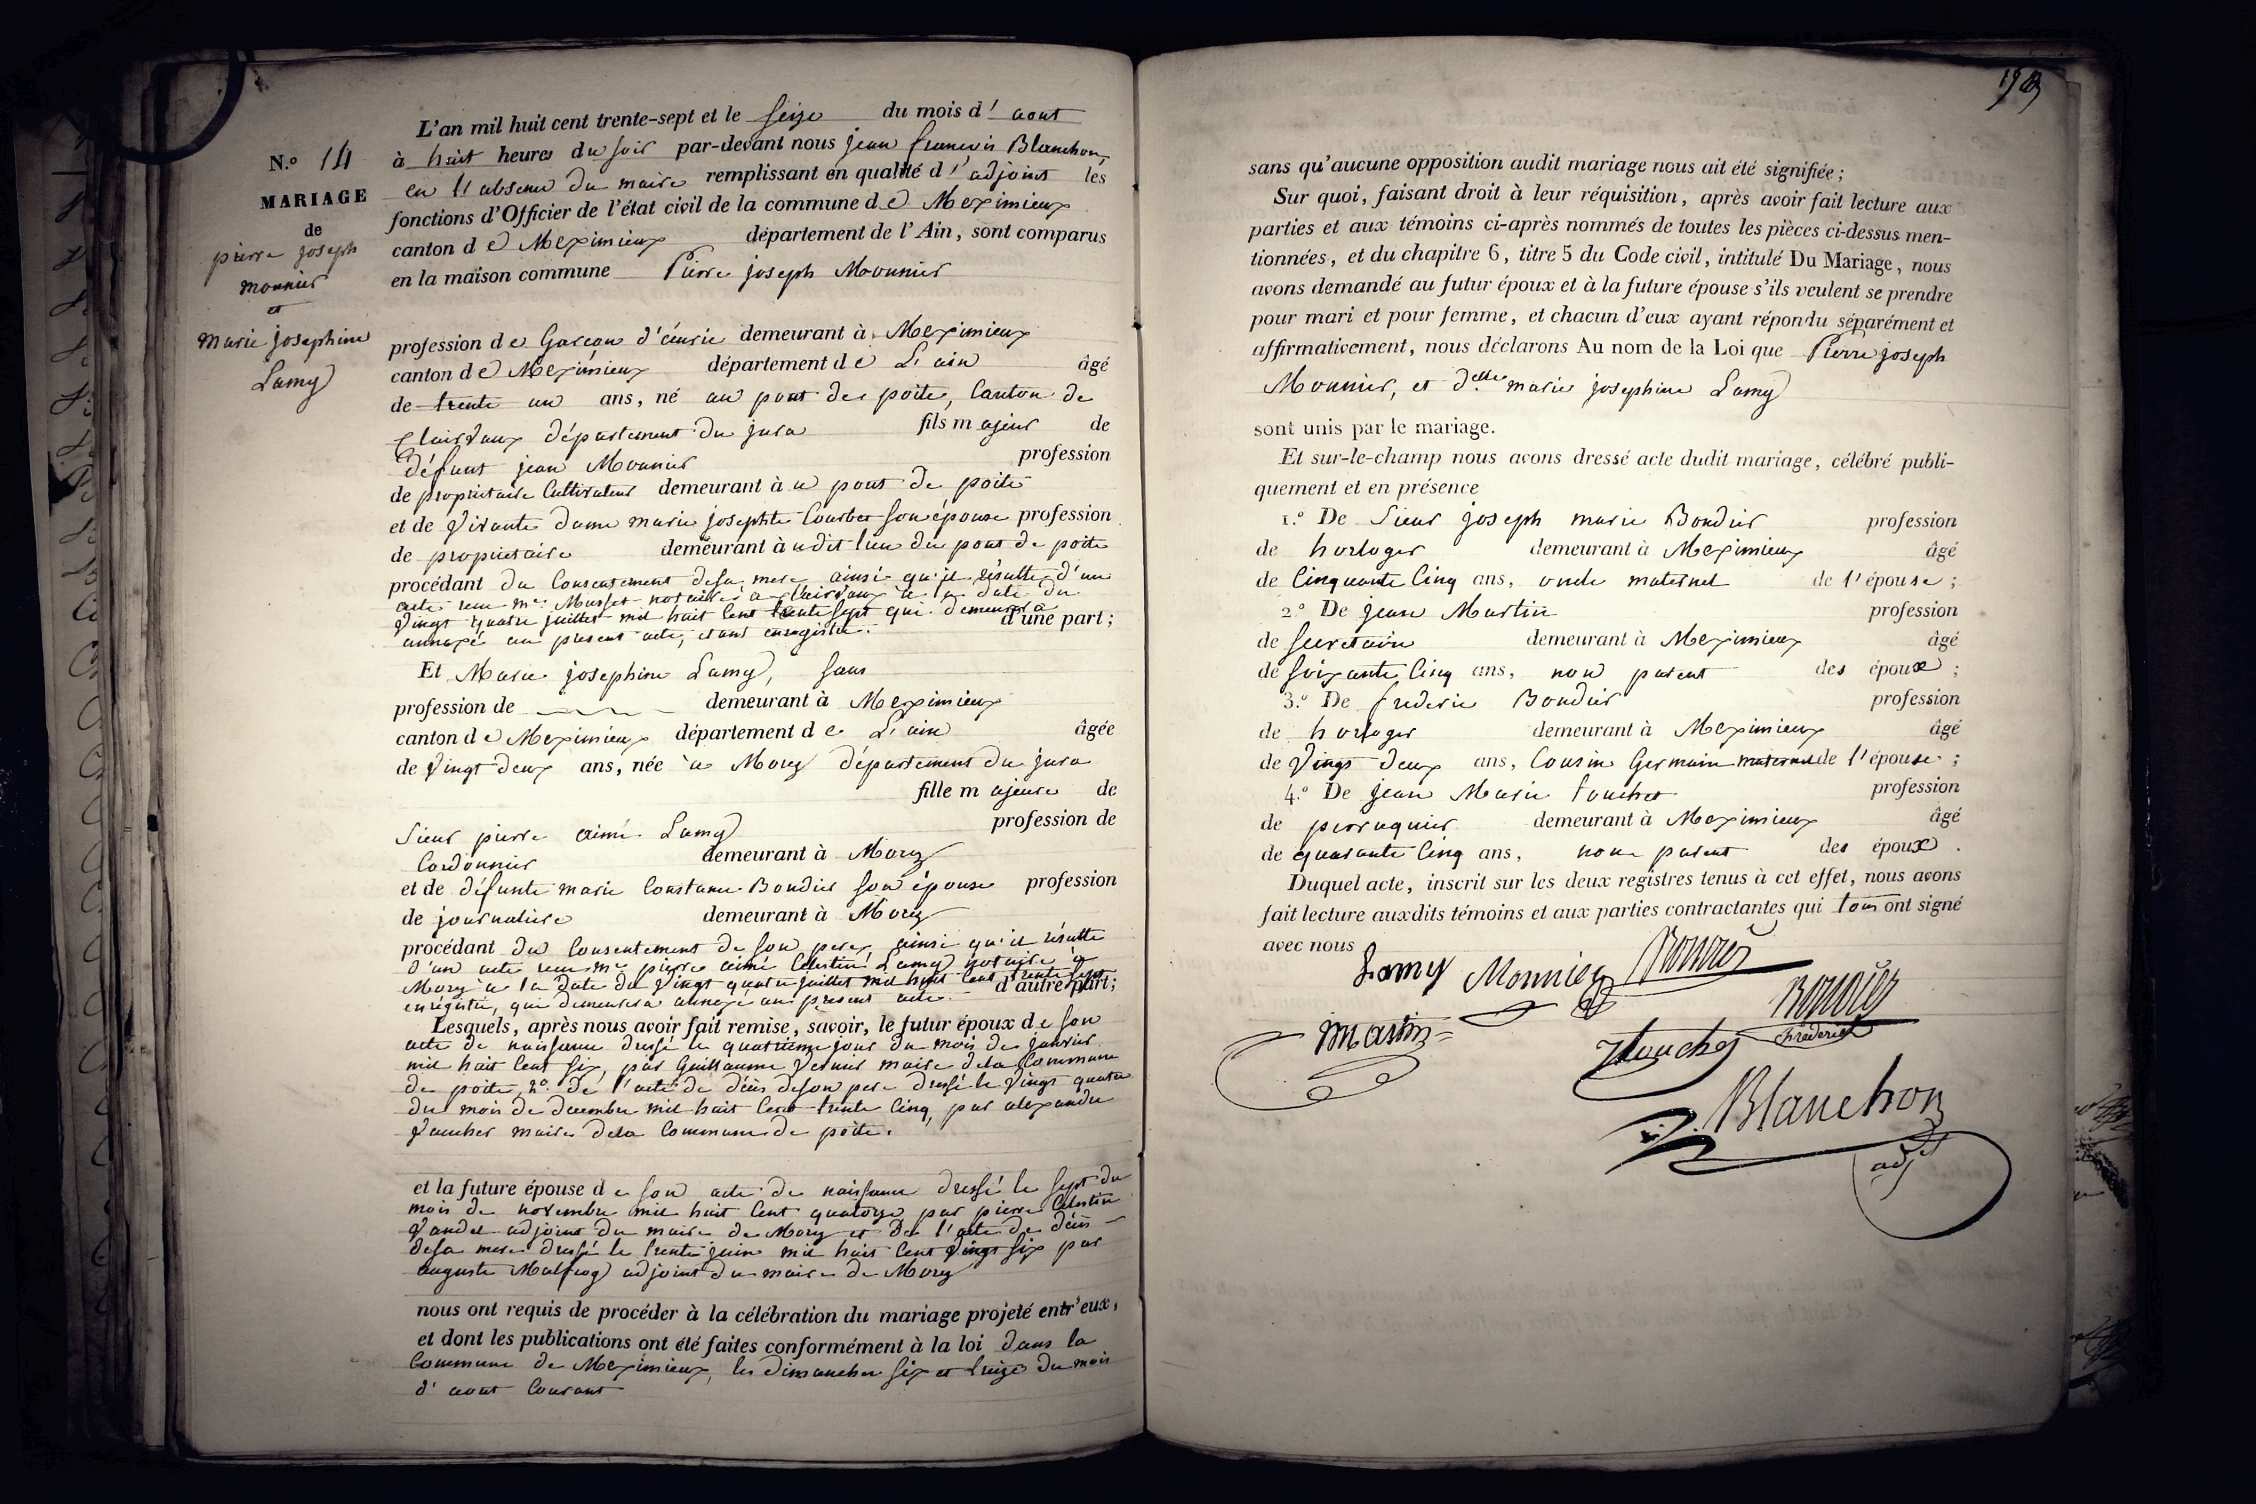 N.º 14
MARIAGE
de
pierre joseph
monnier
et
marie josephine
Lamy
L'an mil huit cent trente-sept et le seize du mois d'aout
à huit heures du soir par-devant nous jean francois Blanchon,
en l'absence du maire remplissant en qualité d'adjoint les
fonctions d'Officier de l'état civil de la commune de Meximieux
canton de Meximieux département de l'Ain, sont comparus
en la maison commune Pierre joseph Mounnier
profession de Garcon d'écurie demeurant à Meximieux
canton de Meximieux département de L'ain âgé
de trente un ans, né au pont de poite, Canton de
Clairvaux département du jura fils majeur de
défunt jean Mounier profession
de propriétaire Cultivateur demeurant à u pont de poite
et de vivante dame marie josephte Courbet son épouse profession
de propriétaire demeurant à udit lieu du pont de poite
procédant du Consentement de sa mere ainsi qu'il résulte d'un
acte recu me. Musset notaire à Clairvaux à la date du
vingt quatre juillet mil huit Cent trente sept qui demeurera
annexé au present acte, etant enregistré. d'une part;
Et Marie josephine Lamy, sans
profession de demeurant à Meximieux
canton de Meximieux département de L'ain âgée
de vingt deux ans, née à Morez département du jura
fille majeure de
Sieur pierre aimé Lamy profession de
Cordonnier demeurant à Morez
et de défunte marie Constance Bondier son épouse profession
de journalière demeurant à Morez
procédant du Consentement de son pere, ainsi qu'il résulte
d'un acte recu me pierre aimé Célestin Lamy notaire à
Morez à la date du vingt quatre juillet mil huit Cent trente sept
enrégistré, qui demeurera annexé au présent acte. d'autre part;
Lesquels, après nous avoir fait remise, savoir, le futur époux de son
acte de naissance dressé le quatrieme jour du mois de janvier
mil huit Cent six, par Guillaume Vernier maire de la Commune
de poite, 2º. de l'acte de décès de son pere dressé le vingt quatre
du mois de decembre mil huit Cent trente Cinq, par alexandre
Vaucher maire de la Commune de poite.
et la future épouse de son acte de naissance dressé le sept du
mois de novembre mil huit Cent quatorze par pierre Celestin
Vandel adjoint du maire de Morez et De l'acte de décès
de sa mere dressé le trente juin mil huit Cent vingt six par
auguste Malfroy adjoint du maire de Morez
nous ont requis de procéder à la célébration du mariage projeté entr'eux,
et dont les publications ont été faites conformément à la loi dans la
Commune de Meximieux, les dimanches six et treize du mois
d'aout Courant
sans qu'aucune opposition audit mariage nous ait été signifiée;
Sur quoi, faisant droit à leur réquisition, après avoir fait lecture aux
parties et aux témoins ci-après nommés de toutes les pièces ci-dessus men-
tionnées, et du chapitre 6, titre 5 du Code civil, intitulé Du Mariage, nous
avons demandé au futur époux et à la future épouse s'ils veulent se prendre
pour mari et pour femme, et chacun d'eux ayant répondu séparément et
affirmativement, nous déclarons Au nom de la Loi que Pierre joseph
Mounier, et delle marie josephine Lamy
sont unis par le mariage.
Et sur-le-champ nous avons dressé acte dudit mariage, célébré publi-
quement et en présence
1.º De Sieur joseph marie Bondier profession
de horloger demeurant à Meximieux âgé
de Cinquante Cinq ans, oncle maternel de l'épouse;
2.º De jean Martin profession
de Secretaire demeurant à Meximieux âgé
de soixante Cinq ans, non parent des époux;
3.º De frederic Bondier profession
de horloger demeurant à Meximieux âgé
de vingt deux ans, Cousin Germain maternel de l'épouse;
4.º De jean Marie touchet profession
de perruquier demeurant à Meximieux âgé
de quarante Cinq ans, non parent des époux.
Duquel acte, inscrit sur les deux registres tenus à cet effet, nous avons
fait lecture auxdits témoins et aux parties contractantes qui tous ont signé
avec nous
Lamy Monnier Bondier
Martin Bondier
frederick
Touchet
Blanchon
adj